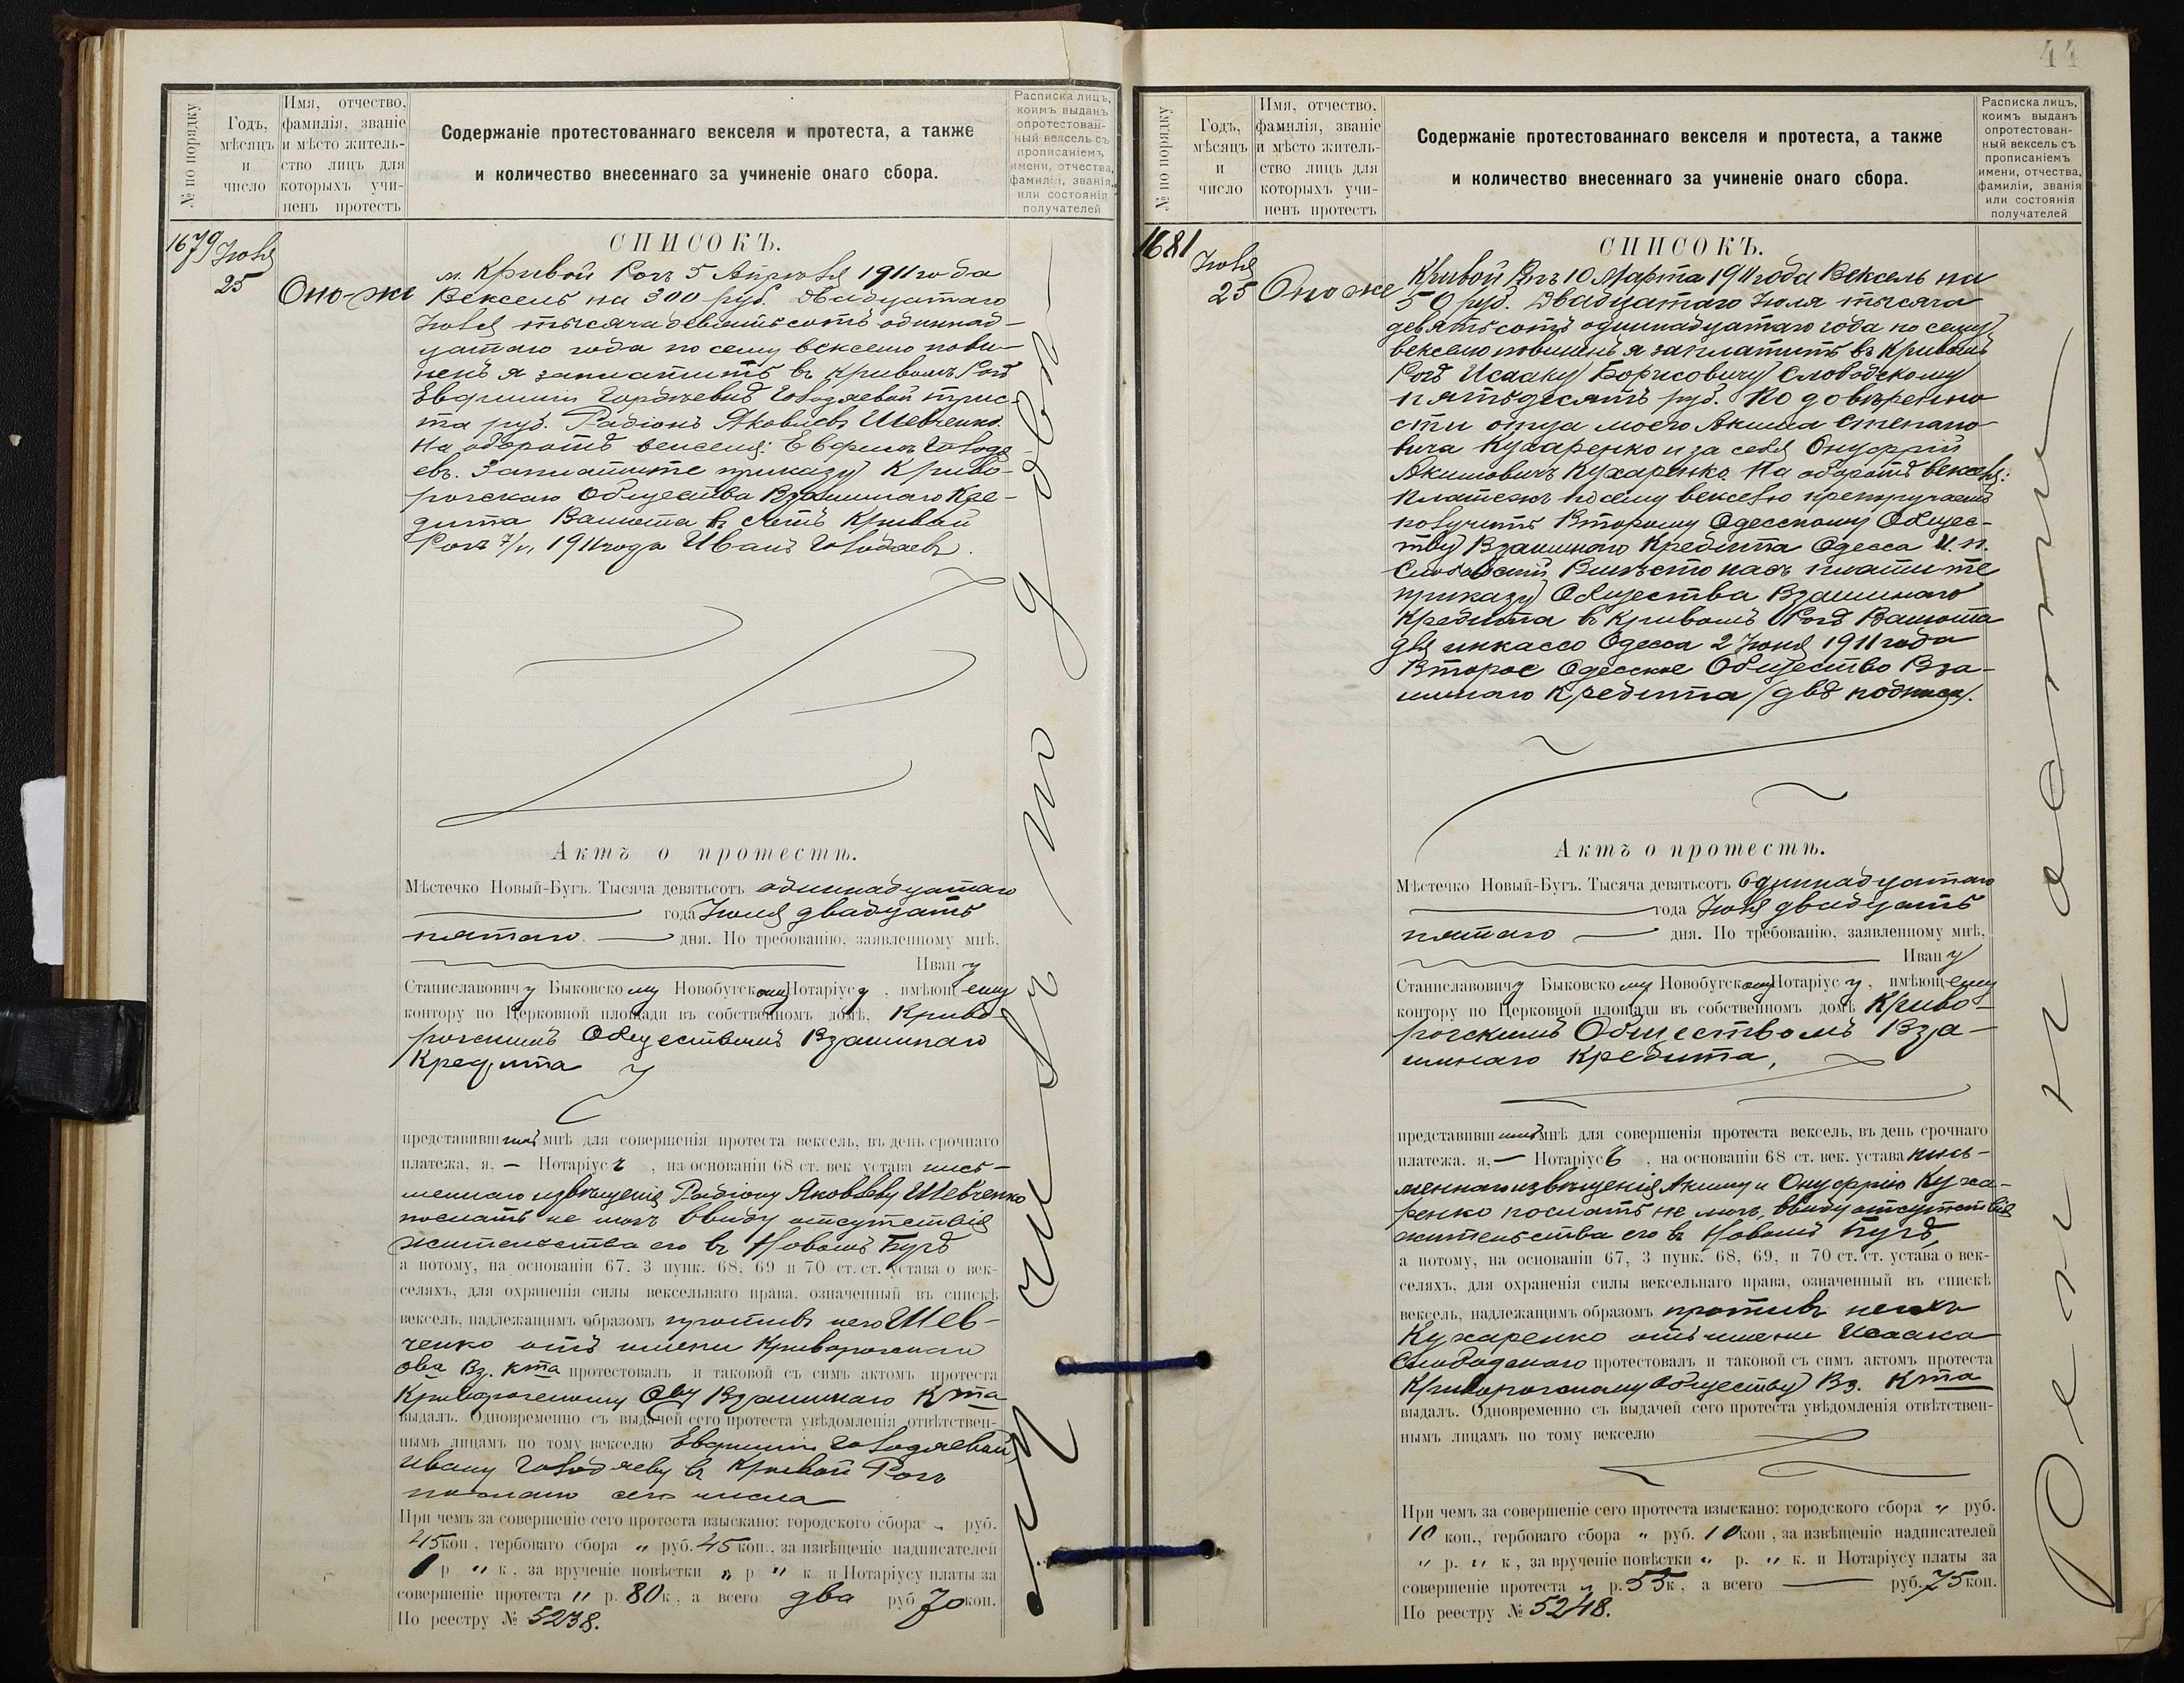 № по порядку
Годъ,
мѣсяцъ
и
число
Имя, отчество,
фамилія, званіе
и мѣсто житель-
ство лицъ для
которыхъ учи-
ненъ протестъ
Содержаніе протестованнаго векселя и протеста, а также
и количество внесеннаго за учиненіе онаго сбора.
Расписка лицъ,
коимъ выданъ
опротестован-
ный вексель съ
прописаніемъ
имени, отчества,
фамиліи, званія
или состоянія
получателей
1679
Іюля
25
Оно-же
СПИСОКЪ.
м. Кривой Рогъ 5 Апрѣля 1911 года
Вексель на 300 руб. Двадцатаго
Іюля тысяча девятьсотъ одиннад-
цатаго года по сему векселю пови-
ненъ я заплатить въ Кривомъ Рогѣ
Евфиміи Гордѣевнѣ Голодяевой трис-
та руб. Радіонъ Яковлевъ Шевченко.
На оборотѣ векселя:
евъ. Заплатите приказу Криво-
рогскаго Общества Взаимнаго Кре-
дита Валюта въ счетъ Кривой
Рогъ 7/VI 1911 года Иванъ Голодаевъ.
Актъ о протестѣ.
Мѣстечко Новый-Бугъ. Тысяча девятьсотъ одиннадцатаго
года Іюля двадцать
пятаго дня. По требованію, заявленному мнѣ,
Ивану
Станиславовичу Быковскому Новобугскому Нотаріусу, имѣющему
контору по Церковной площади въ собственномъ домѣ, Криво-
рогскимъ Обществомъ Взаимнаго
Кредита
представившимъ мнѣ для совершенія протеста вексель, въ день срочнаго
платежа, я, — Нотаріусъ, на основаніи 68 ст. век устава пись-
меннаго извѣщенія Радіону Яковлеву Шевченко
послать не могъ ввиду отсутствія
жительства его въ Новомъ Бугѣ
а потому, на основаніи 67, 3 пунк. 68, 69 и 70 ст. ст. устава о век-
селяхъ, для охраненія силы вексельнаго права, означенный въ спискѣ
вексель, надлежащимъ образомъ противъ него Шев-
ченко отъ имени Криворогскаго
Ова Вз. Кта протестовалъ и таковой съ симъ актомъ протеста
Криворогскому Ову Взаимнаго Кта
выдалъ. Одновременно съ выдачей сего протеста увѣдомленія отвѣтствен-
нымъ лицамъ по тому векселю Евфиміи Голодяевой,
Ивану Голодяеву въ Кривой Рогъ
послано сего числа
При чемъ за совершеніе сего протеста взыскано: городского сбора „ руб.
45 коп, гербоваго сбора „ руб. 45 коп., за извѣщеніе надписателей
1 р „ к, за врученіе повѣстки „ р „ к. и Нотаріусу платы за
совершеніе протеста „ р. 80 к, а всего два руб 70 коп.
По реестру № 5238.
44
№ по порядку
Годъ,
мѣсяцъ
и
число
Имя, отчество,
фамилія, званіе
и мѣсто житель-
ство лицъ для
которыхъ учи-
ненъ протестъ
Содержаніе протестованнаго векселя и протеста, а также
и количество внесеннаго за учиненіе онаго сбора.
Расписка лицъ,
коимъ выданъ
опротестован-
ный вексель съ
прописаніемъ
имени, отчества,
фамиліи, званія
или состоянія
получателей
1681
Іюля
25
Оно же
СПИСОКЪ.
Кривой Рогъ 10 Марта 1911 года Вексель на
50 руб. Двадцатаго Іюля тысяча
девятьсотъ одиннадцатаго года по сему
векселю повиненъ я заплатить въ Кривомъ
Рогѣ Исааку Борисовичу Слободскому
пятьдесятъ руб. По довѣренно
сти отца моего Акима Степано
вича Кухаренко и за себя Онуфрій
Акимовичъ Кухаренко. На оборотѣ векселя:
Платежъ по сему векселю препоручаемъ
получить Второму Одесскому Общес-
тву Взаимнаго Кредита Одесса
Слободскій Вмѣсто насъ платите
приказу Общества Взаимнаго
Кредита въ Кривомъ Рогѣ Валюта
для инкассо Одесса 2 Іюня 1911 года
Второе Одесское Общество Вза-
имнаго Кредита (двѣ подписи).
Актъ о протестѣ.
Мѣстечко Новый-Бугъ. Тысяча девятьсотъ Одиннадцатаго
года Іюля двадцать
пятаго дня. По требованію, заявленному мнѣ,
Ивану
Станиславовичу Быковскому Новобугскому Нотаріусу, имѣющему
контору по Церковной площади въ собственномъ домѣ Криво-
рогскимъ Обществомъ Вза-
имнаго Кредита,
представившимъ мнѣ для совершенія протеста вексель, въ день срочнаго
платежа. я, — Нотаріусъ, на основаніи 68 ст. век. устава пись-
меннаго извѣщенія Акиму и Онуфрію Куха-
ренко послать не могъ, ввиду отсутствія
жительства его въ Новомъ Бугѣ,
а потому, на основаніи 67, 3 пунк. 68, 69, и 70 ст. ст. устава о век-
селяхъ, для охраненія силы вексельнаго права, означенный въ спискѣ
вексель, надлежащимъ образомъ противъ
Кухаренко отъ имени Исаака
Слободскаго протестовалъ и таковой съ симъ актомъ протеста
Криворогскому Обществу Вз. Кта
выдалъ. Одновременно съ выдачей сего протеста увѣдомленія отвѣтствен-
нымъ лицамъ по тому векселю
При чемъ за совершеніе сего протеста взыскано: городского сбора „ руб.
10 коп., гербоваго сбора „ руб. 10 коп, за извѣщеніе надписателей
„ р. „ к, за врученіе повѣстки „ р. „ к. и Нотаріусу платы за
совершеніе протеста „ р. 55 к, а всего — руб. 75 коп.
По реестру № 5248.